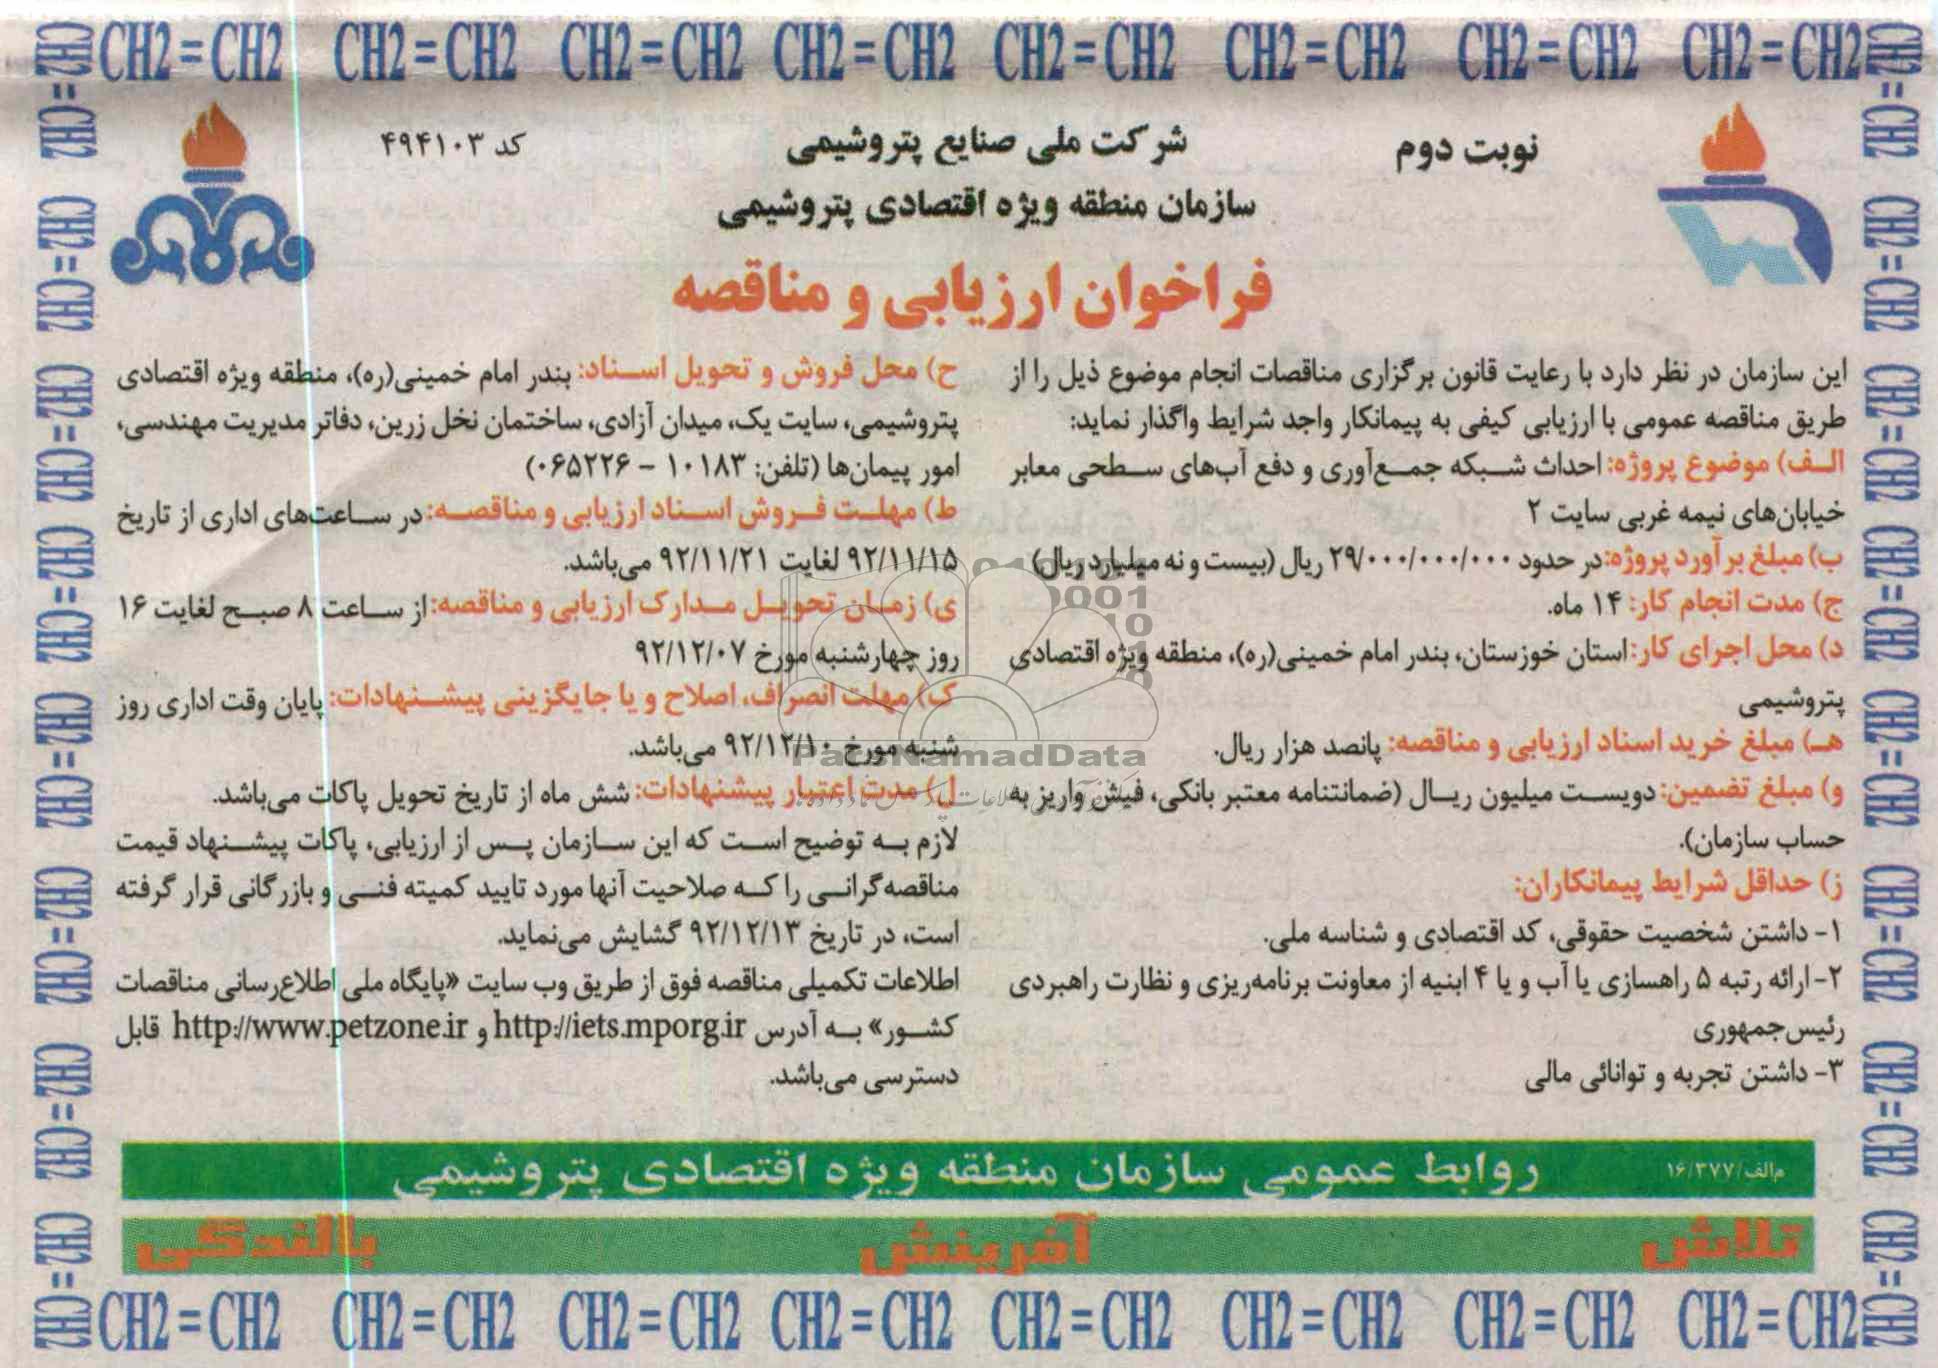 CH2=CH2 CH2=CH2 CH2=CH2 CH2=CH2 CH2=CH2 CH2=CH2 CH2=CH2 CH2=CH2
نوبت دوم
شرکت ملی صنایع پتروشیمی
کد ۴۹۴۱۰۳
سازمان منطقه ویژه اقتصادی پتروشیمی
فراخوان ارزیابی و مناقصه
این سازمان در نظر دارد با رعایت قانون برگزاری مناقصات انجام موضوع ذیل را از
طریق مناقصه عمومی با ارزیابی کیفی به پیمانکار واجد شرایط واگذار نماید:
الف) موضوع پروژه: احداث شبکه جمع‌آوری و دفع آب‌های سطحی معابر
خیابان‌های نیمه غربی سایت ۲
ب) مبلغ برآورد پروژه: در حدود ۲۹/۰۰۰/۰۰۰/۰۰۰ ریال (بیست و نه میلیارد ریال)
ج) مدت انجام کار: ۱۴ ماه.
د) محل اجرای کار: استان خوزستان، بندر امام خمینی(ره)، منطقه ویژه اقتصادی
پتروشیمی
هـ) مبلغ خرید اسناد ارزیابی و مناقصه: پانصد هزار ریال.
و) مبلغ تضمین: دویست میلیون ریال (ضمانتنامه معتبر بانکی، فیش واریز به
حساب سازمان).
ز) حداقل شرایط پیمانکاران:
۱- داشتن شخصیت حقوقی، کد اقتصادی و شناسه ملی.
۲- ارائه رتبه ۵ راهسازی یا آب و یا ۴ ابنیه از معاونت برنامه‌ریزی و نظارت راهبردی
رئیس‌جمهوری
۳- داشتن تجربه و توانائی مالی
ح) محل فروش و تحویل اسناد: بندر امام خمینی(ره)، منطقه ویژه اقتصادی
پتروشیمی، سایت یک، میدان آزادی، ساختمان نخل زرین، دفاتر مدیریت مهندسی،
امور پیمان‌ها (تلفن: ۱۰۱۸۳ - ۰۶۵۲۲۶)
ط) مهلت فروش اسناد ارزیابی و مناقصه: در ساعت‌های اداری از تاریخ
۹۲/۱۱/۱۵ لغایت ۹۲/۱۱/۲۱ می‌باشد.
ی) زمان تحویل مدارک ارزیابی و مناقصه: از ساعت ۸ صبح لغایت ۱۶
روز چهارشنبه مورخ ۹۲/۱۲/۰۷
ک) مهلت انصراف، اصلاح و یا جایگزینی پیشنهادات: پایان وقت اداری روز
شنبه مورخ ۹۲/۱۲/۱۰ می‌باشد.
ل) مدت اعتبار پیشنهادات: شش ماه از تاریخ تحویل پاکات می‌باشد.
لازم به توضیح است که این سازمان پس از ارزیابی، پاکات پیشنهاد قیمت
مناقصه‌گرانی را که صلاحیت آنها مورد تایید کمیته فنی و بازرگانی قرار گرفته
است، در تاریخ ۹۲/۱۲/۱۳ گشایش می‌نماید.
اطلاعات تکمیلی مناقصه فوق از طریق وب سایت «پایگاه ملی اطلاع‌رسانی مناقصات
کشور» به آدرس http://iets.mporg.ir و http://www.petzone.ir قابل
دسترسی می‌باشد.
ParsNamadData
م/الف/۱۶/۳۷۷
روابط عمومی سازمان منطقه ویژه اقتصادی پتروشیمی
تلاش آفرینش بالندگی
CH2=CH2 CH2=CH2 CH2=CH2 CH2=CH2 CH2=CH2 CH2=CH2 CH2=CH2 CH2=CH2